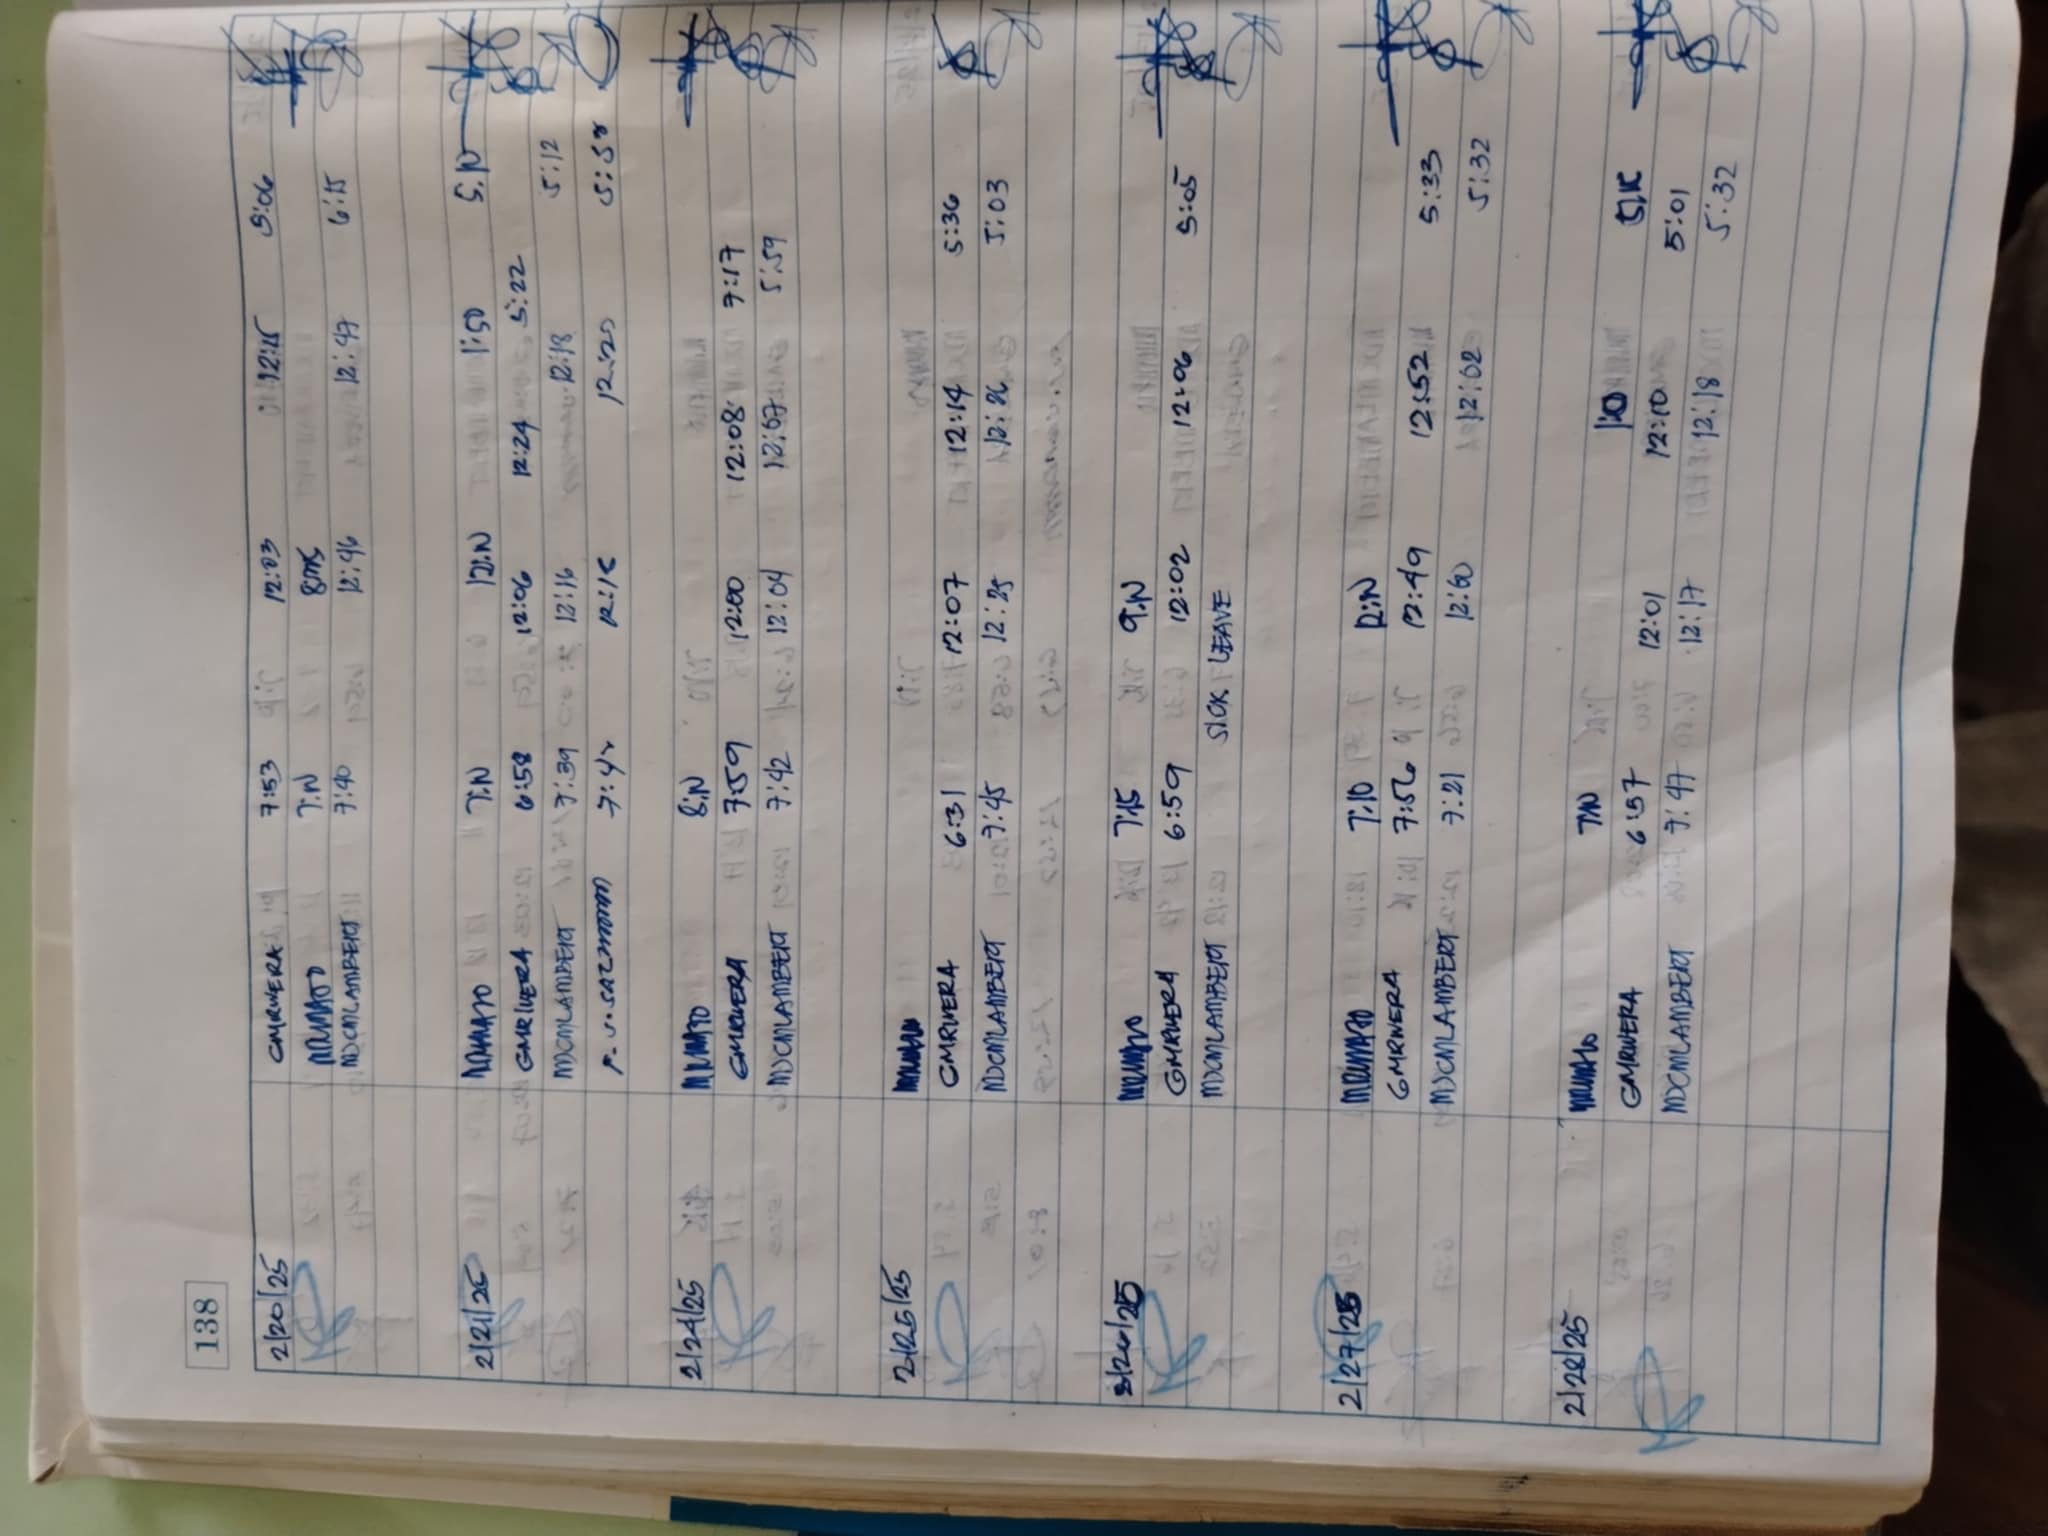 138
2/20/25 GMRIVERA 7:53 12:03 12:15 5:06
7:N
MDCMLAMBERT 7:40 12:46 12:47 6:15
2/21/25 7:N 12:N 1:50 5:N
GMRIVERA 6:58 12:06 12:24 5:22
MDCMLAMBERT 7:39 12:16 12:18 5:12
12:15 12:25 5:58
2/24/25 8:N
GMRIVERA 7:59 12:00 12:08 7:17
MDCMLAMBERT 7:42 12:04 12:07 5:59
2/25/25
GMRIVERA 6:31 12:07 12:14 5:36
MDCMLAMBERT 7:45 12:25 12:26 5:03
2/26/25 7:15 9:N
GMRIVERA 6:59 12:02 12:06 5:05
MDCMLAMBERT SICK LEAVE
2/27/25 7:10 12:N
GMRIVERA 7:56 12:49 12:52 5:33
MDCMLAMBERT 7:21 12:00 12:02 5:32
2/28/25 7:N
GMRIVERA 6:57 12:01 12:10 5:01
MDCMLAMBERT 7:47 12:17 12:18 5:32